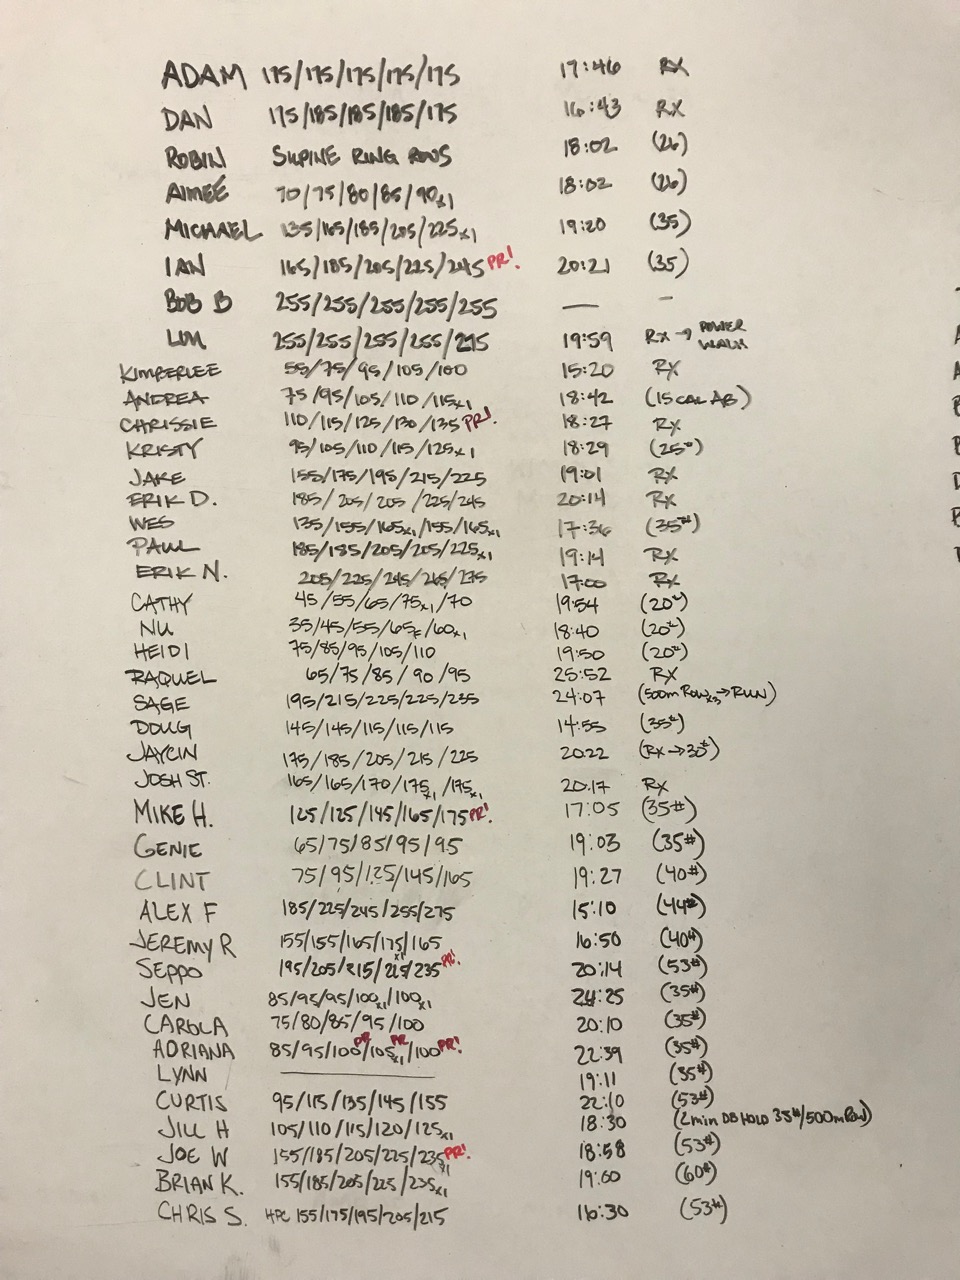 ADAM 175/175/175/175/175 17:46 RX
DAN 175/185/185/185/175 16:43 RX
ROBIN SUPINE RING ROWS 18:02 (26)
AIMEE 70/75/80/85/90x1 18:02 (26)
MICHAEL 135/165/185/205/225x1 19:20 (35)
IAN 165/185/205/225/245 PR! 20:21 (35)
BOB B 255/255/255/255/255 — –
LIM 255/255/255/255/275 19:59 RX → POWER WALK
KIMBERLEE 55/75/95/105/100 15:20 RX
ANDREA 75/95/105/110/115x1 18:42 (15 CAL AB)
CHRISSIE 110/115/125/130/135 PR! 18:27 RX
KRISTY 95/105/110/115/125x1 18:29 (25#)
JAKE 155/175/195/215/225 19:01 RX
ERIK D. 185/205/205/225/245 20:14 RX
WES 135/155/165x1/155/165x1 17:36 (35#)
PAUL 185/185/205/205/225x1 19:14 RX
ERIK N. 205/225/245/265/275 17:00 RX
CATHY 45/55/65/75x1/70 19:54 (20#)
NU 35/45/55/65/60x1 18:40 (20#)
HEIDI 75/85/95/105/110 19:50 (20#)
RAQUEL 65/75/85/90/95 25:52 RX
SAGE 195/215/225/225/235 24:07 (500m Row x3 → RUN)
DOUG 145/145/115/115/115 14:55 (35#)
JAYCIN 175/185/205/215/225 20:22 (RX → 30#)
JOSH ST. 165/165/170/175x1/175x1 20:17 RX
MIKE H. 125/125/145/165/175 PR! 17:05 (35#)
GENIE 65/75/85/95/95 19:03 (35#)
CLINT 75/95/125/145/165 19:27 (40#)
ALEX F 185/225/245/255/275 15:10 (44#)
JEREMY R 155/155/165/175x1/165 16:50 (40#)
SEPPO 195/205/215/225/235 PR! 20:14 (53#)
JEN 85/95/95/100x1/100x1 24:25 (35#)
CAROLA 75/80/85/95/100 20:10 (35#)
ADRIANA 85/95/100 PR/105x1 PR/100 PR! 22:39 (35#)
LYNN 19:11 (35#)
CURTIS 95/115/135/145/155 22:10 (53#)
JILL H 105/110/115/120/125x1 18:30 (2min DB HOLD 35#/500m Row)
JOE W 155/185/205/225/235x1 PR! 18:58 (53#)
BRIAN K. 155/185/205/225/235x1 19:00 (60#)
CHRIS S. HPC 155/175/195/205/215 16:30 (53#)